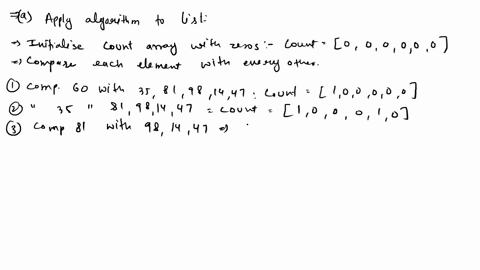 ⇒(a) Apply algorithm to list:
→ Initialise count array with zeros :- Count = [0, 0, 0, 0, 0, 0]
→ Compare each element with every other.
① Comp. 60 with 35, 81, 98, 14, 47 : Count = [1,0,0,0,0,0]
② " 35 " 81, 98, 14, 47 = Count = [1, 0, 0, 0, 1, 0]
③ Comp 81 with 98, 14, 47 ⇒